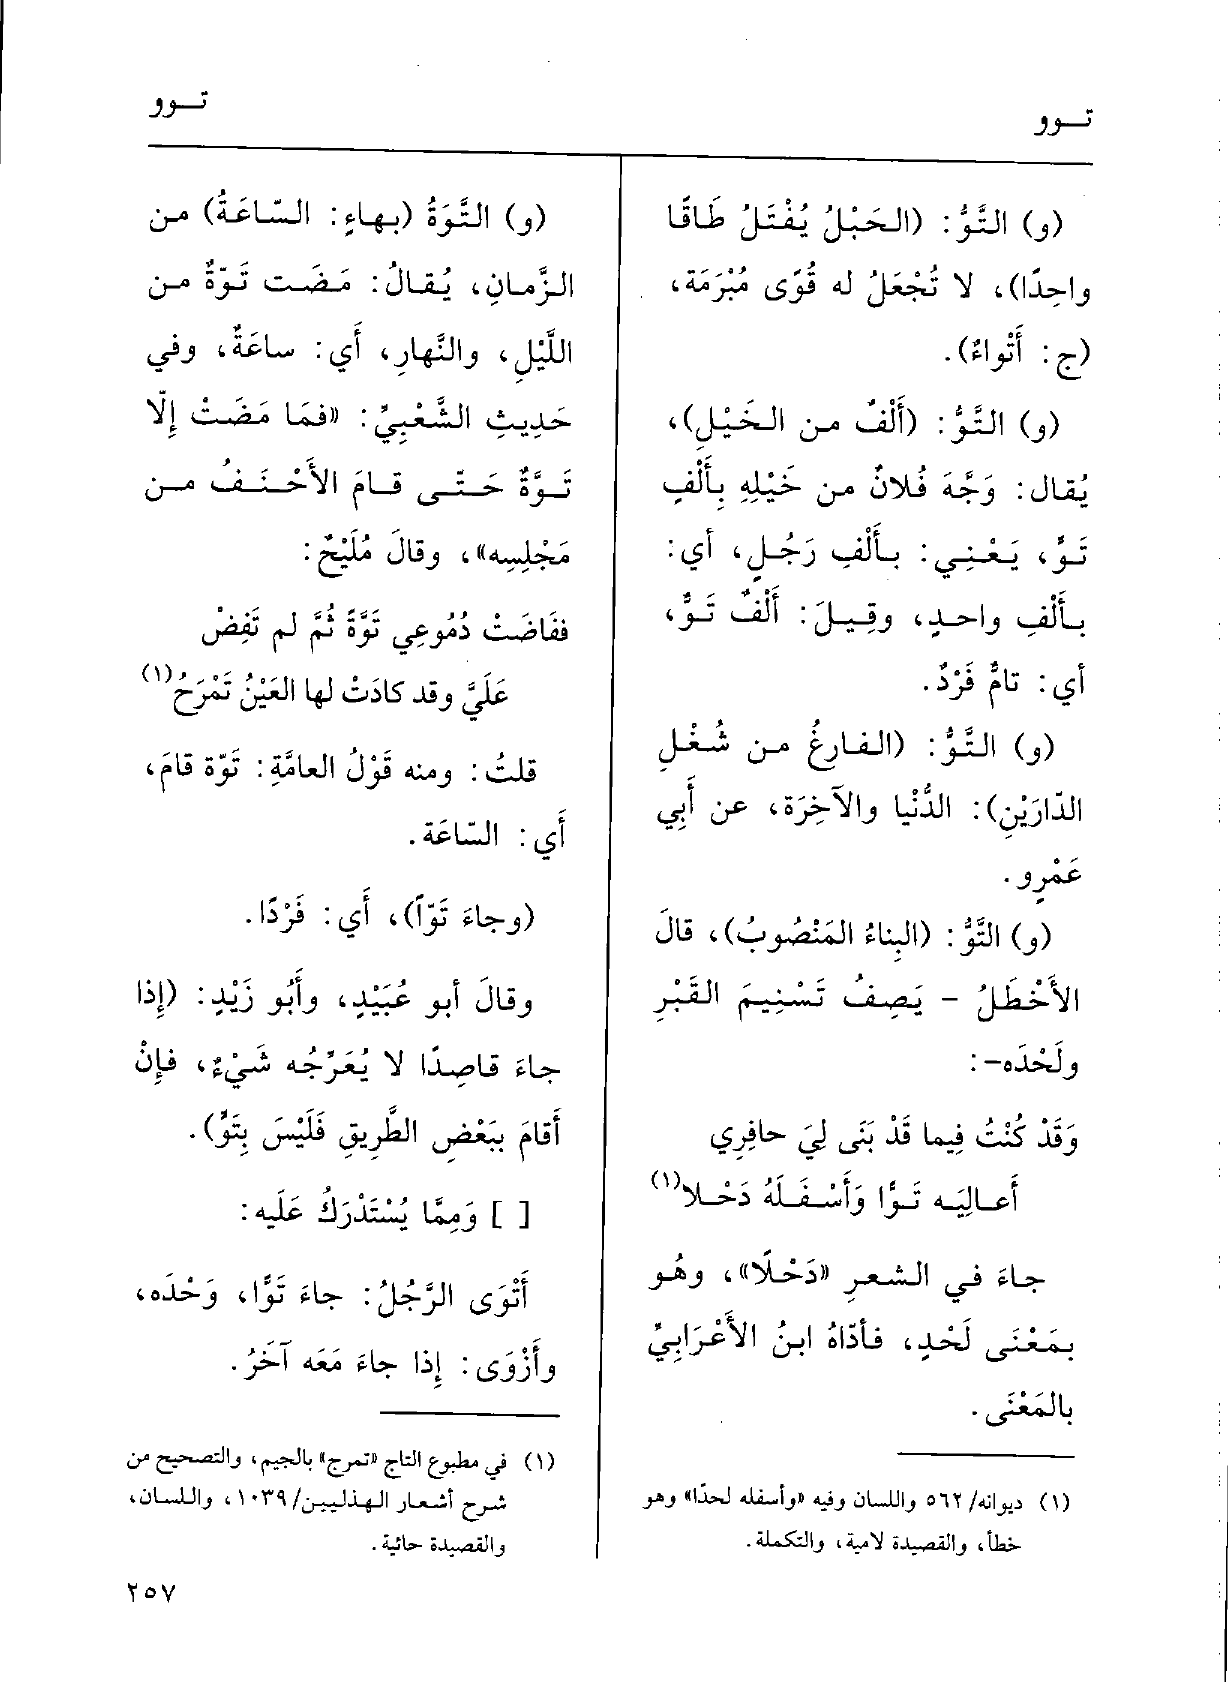 تــوو
تــوو
(و) التَّوُّ: (الحَبْلُ يُفْتَلُ طَاقًا
واحِدًا)، لا تُجْعَلُ له قُوًى مُبْرَمَة،
(ج: أَتْواءٌ).
(و) التَّوُّ: (أَلْفٌ من الخَيْلِ)،
يُقال: وَجَّهَ فُلانٌ من خَيْلِهِ بِأَلْفٍ
تَوٍّ، يَعْنِي: بأَلْفِ رَجُلٍ، أي:
بأَلْفٍ واحدٍ، وقِيلَ: أَلْفٌ تَوٌّ،
أي: تامٌّ فَرْدٌ.
(و) التَّوُّ: (الفارِغُ من شُغْلِ
الدّارَيْنِ): الدُّنْيا والآخِرَة، عن أَبِي
عَمْرٍو.
(و) التَّوُّ: (البِناءُ المَنْصُوبُ)، قالَ
الأَخْطَلُ - يَصِفُ تَسْنِيمَ القَبْرِ
ولَحْدَه-:
وَقَدْ كُنْتُ فِيما قَدْ بَنَى لِيَ حافِرِي
أعالِيَه تَوًّا وَأَسْفَلَهُ دَحْلا(١)
جاءَ في الشعرِ «دَحْلًا»، وهُو
بمَعْنَى لَحْدٍ، فأدّاهُ ابنُ الأَعْرَابِيِّ
بالمَعْنَى.
(١) ديوانه/ ٥٦٢ واللسان وفيه «وأسفله لحدًا» وهو
خطأ، والقصيدة لامية، والتكملة.
(و) التَّوَةُ (بهاءٍ: السّاعَةُ) من
الزَّمانِ، يُقالُ: مَضَت تَوّةٌ من
اللَّيْلِ، والنَّهارِ، أَي: ساعَةٌ، وفي
حَدِيثِ الشَّعْبِيِّ: «فمَا مَضَتْ إِلّا
تَوَّةٌ حَتّى قامَ الأَحْنَفُ من
مَجْلِسِه»، وقالَ مُلَيْحٌ:
ففَاضَتْ دُمُوعِي تَوَّةً ثُمَّ لم تَفِضْ
عَلَيَّ وقد كادَتْ لها العَيْنُ تَمْرَحُ(١)
قلتُ: ومنه قَوْلُ العامَّةِ: تَوّة قامَ،
أَي: السّاعَة.
(وجاءَ تَوّاً)، أَي: فَرْدًا.
وقالَ أبو عُبَيْدٍ، وأَبُو زَيْدٍ: (إِذا
جاءَ قاصِدًا لا يُعَرِّجُه شَيْءٌ، فإِنْ
أَقامَ ببَعْضِ الطَّرِيقِ فَلَيْسَ بِتَوٍّ).
[ ] وَمِمَّا يُسْتَدْرَكُ عَلَيه:
أَتْوَى الرَّجُلُ: جاءَ تَوًّا، وَحْدَه،
وأَزْوَى: إِذا جاءَ مَعَه آخَرُ.
(١) في مطبوع التاج «تمرج» بالجيم، والتصحيح من
شرح أشعار الهذليين/ ١٠٣٩، واللسان،
والقصيدة حائية.
٢٥٧